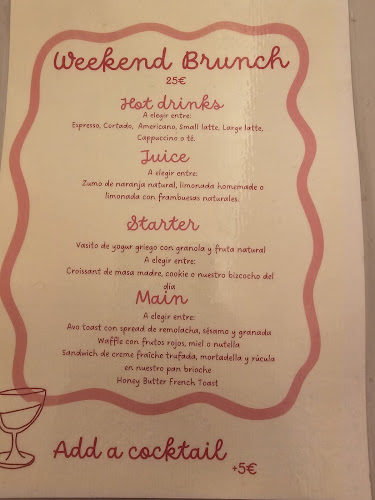 Weekend Brunch
25€
Hot drinks
A elegir entre:
Espresso, Cortado, Americano, Small latte, Large latte,
Cappuccino o té.
Juice
A elegir entre:
Zumo de naranja natural, limonada homemade o
limonada con frambuesas naturales.
Starter
Vasito de yogur griego con granola y fruta natural
A elegir entre:
Croissant de masa madre, cookie o nuestro bizcocho del
dia
Main
A elegir entre:
Avo toast con spread de remolacha, sésamo y granada
Waffle con frutos rojos, miel o nutella
Sandwich de creme fraîche trufada, mortadella y rúcula
en nuestro pan brioche
Honey Butter French Toast
Add a cocktail
+5€